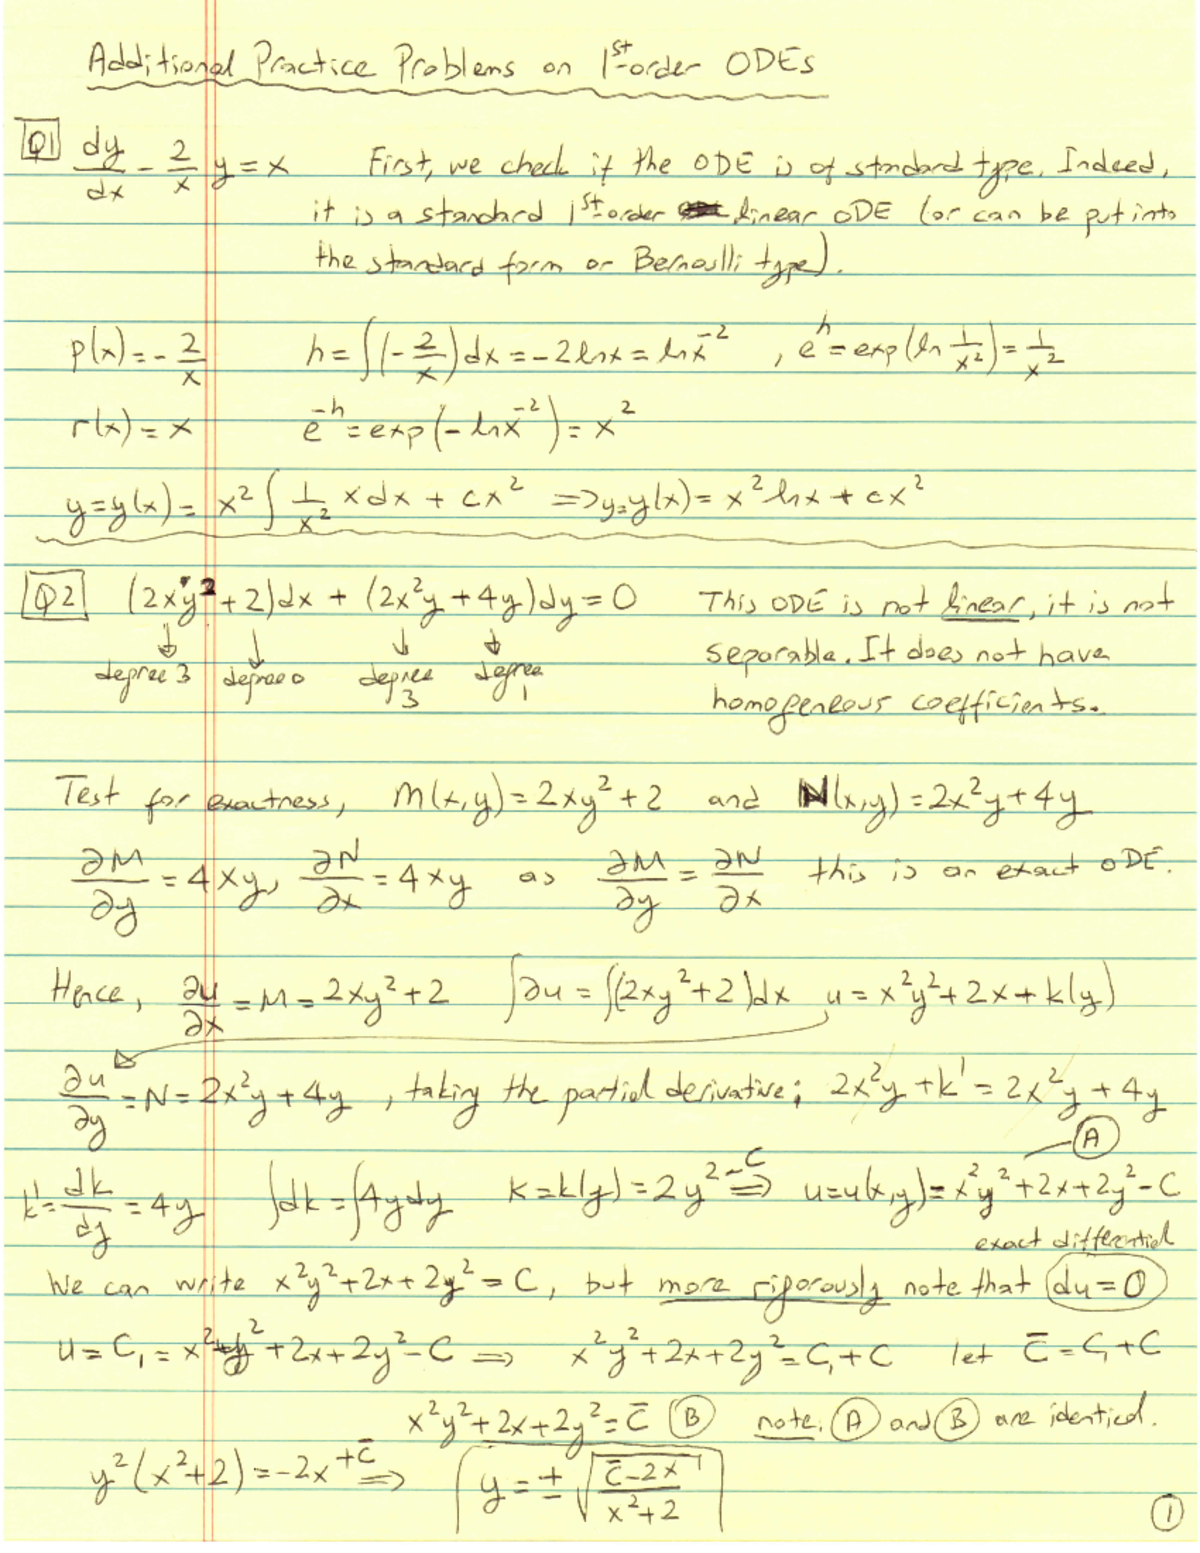 Additional Practice Problems on 1st-order ODEs
Q1 dy/dx - 2/x y = x First, we check if the ODE is of standard type. Indeed,
it is a standard 1st-order linear ODE (or can be put into
the standard form or Bernoulli type).
p(x) = - 2/x h = ∫(-2/x)dx = -2lnx = lnx⁻² , eʰ = exp(ln 1/x²) = 1/x²
r(x) = x e⁻ʰ = exp(-lnx⁻²) = x²
y = y(x) = x² ∫ 1/x² x dx + cx² ⇒ y = y(x) = x² lnx + cx²
Q2 (2xy² + 2)dx + (2x²y + 4y)dy = 0 This ODE is not linear, it is not
degree 3 degree 0 degree 3 degree 1 separable. It does not have
homogeneous coefficients.
Test for exactness, M(x,y) = 2xy² + 2 and N(x,y) = 2x²y + 4y
∂M/∂y = 4xy, ∂N/∂x = 4xy as ∂M/∂y = ∂N/∂x this is an exact ODE.
Hence, ∂u/∂x = M = 2xy² + 2 ∫∂u = ∫(2xy² + 2)dx u = x²y² + 2x + k(y)
∂u/∂y = N = 2x²y + 4y , taking the partial derivative; 2x²y + k' = 2x²y + 4y
A
k' = dk/dy = 4y ∫dk = ∫4ydy k = k(y) = 2y² - C ⇒ u = u(x,y) = x²y² + 2x + 2y² - C
exact differential
We can write x²y² + 2x + 2y² = C, but more rigorously note that du = 0
u = C₁ = x²y² + 2x + 2y² - C ⇒ x²y² + 2x + 2y² = C₁ + C let C̄ = C₁ + C
x²y² + 2x + 2y² = C̄ B note: A and B are identical.
y²(x² + 2) = -2x + C̄ ⇒ y = ± √((C̄ - 2x)/(x² + 2))
1